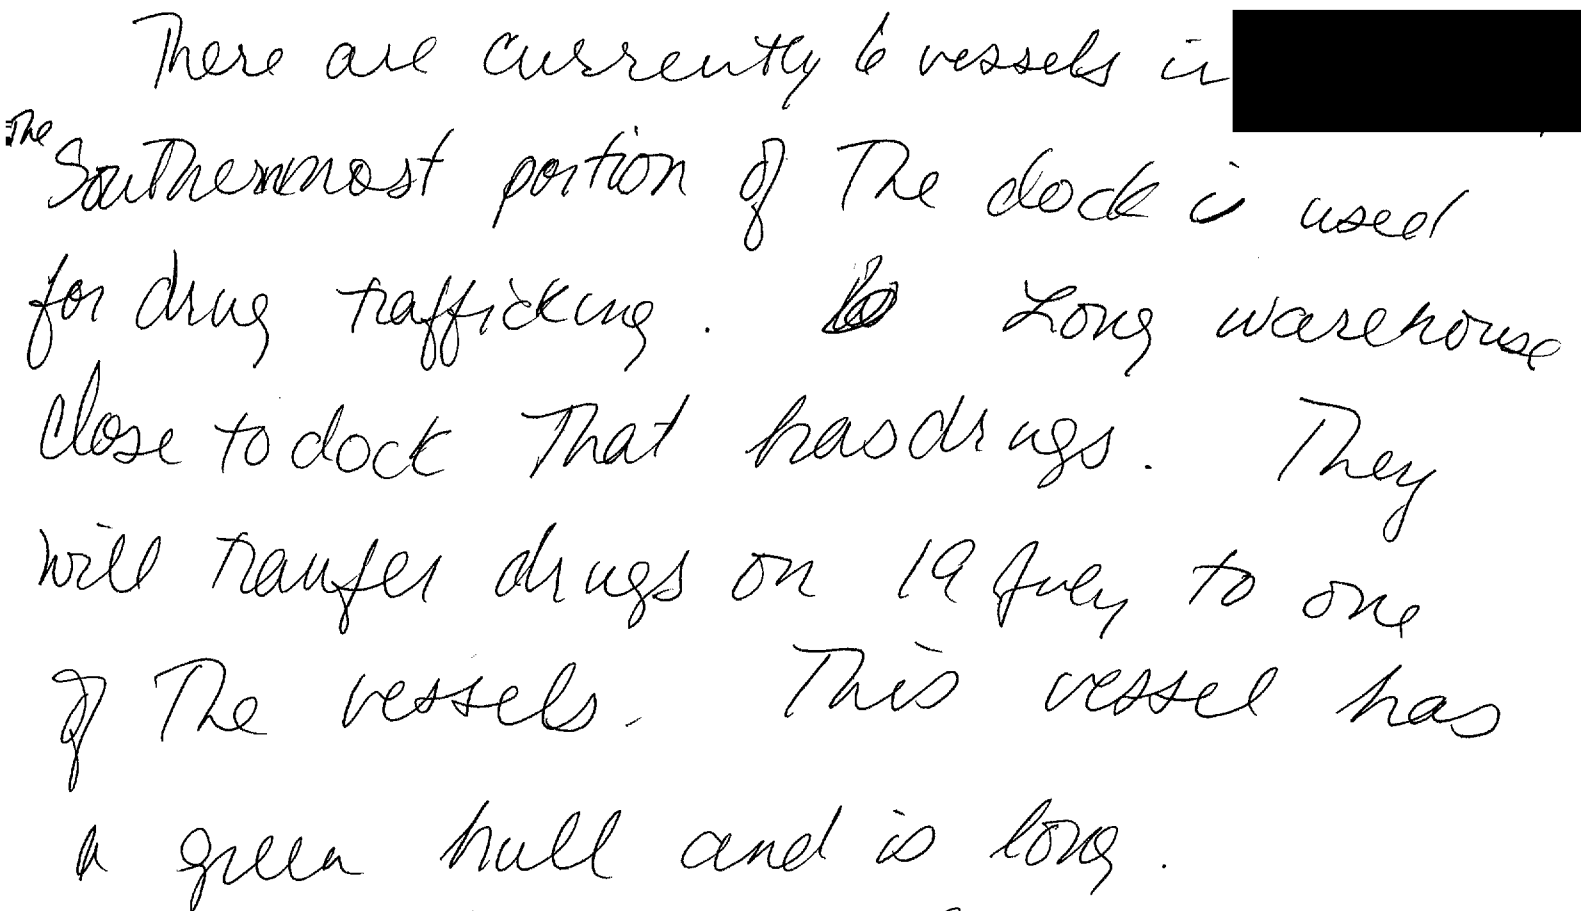 There are currently 6 vessels in
The Southernmost portion of The dock is used
for drug trafficking. Long warehouse
close to dock That has drugs. They
will tranfer drugs on 19 July to one
of The vessels. This vessel has
a green hull and is long.